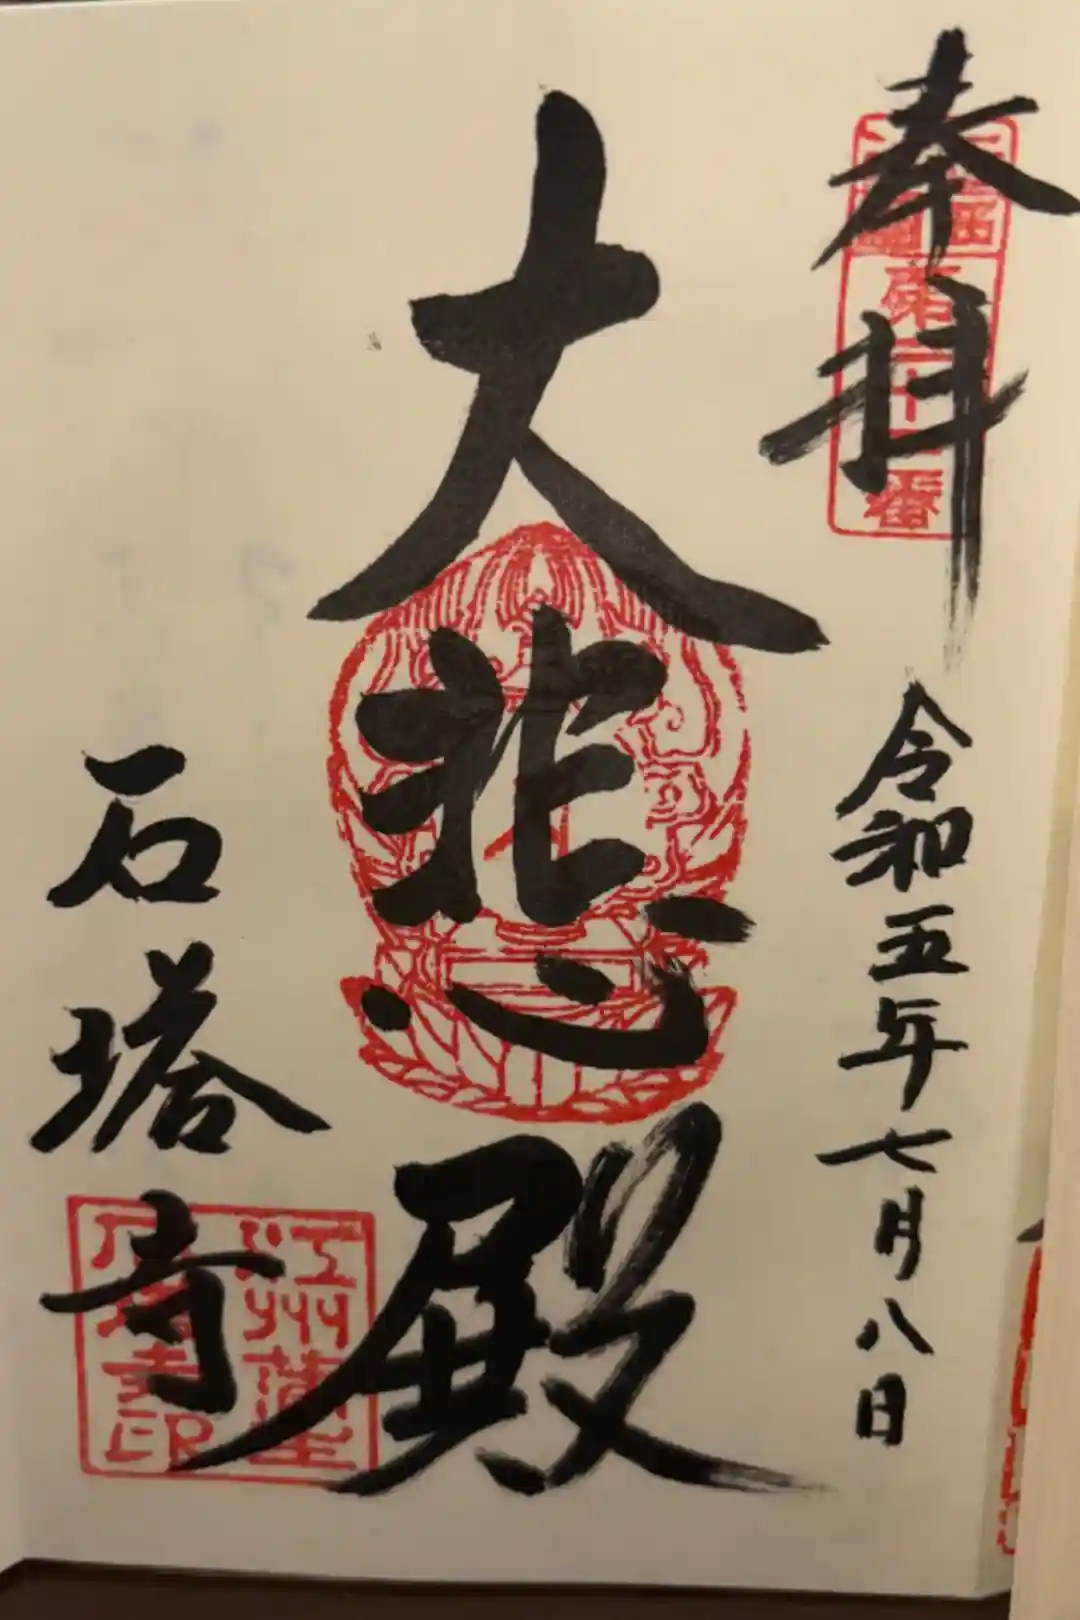 奉拝
令和五年七月八日
大悲殿
石塔寺
江州蒲生